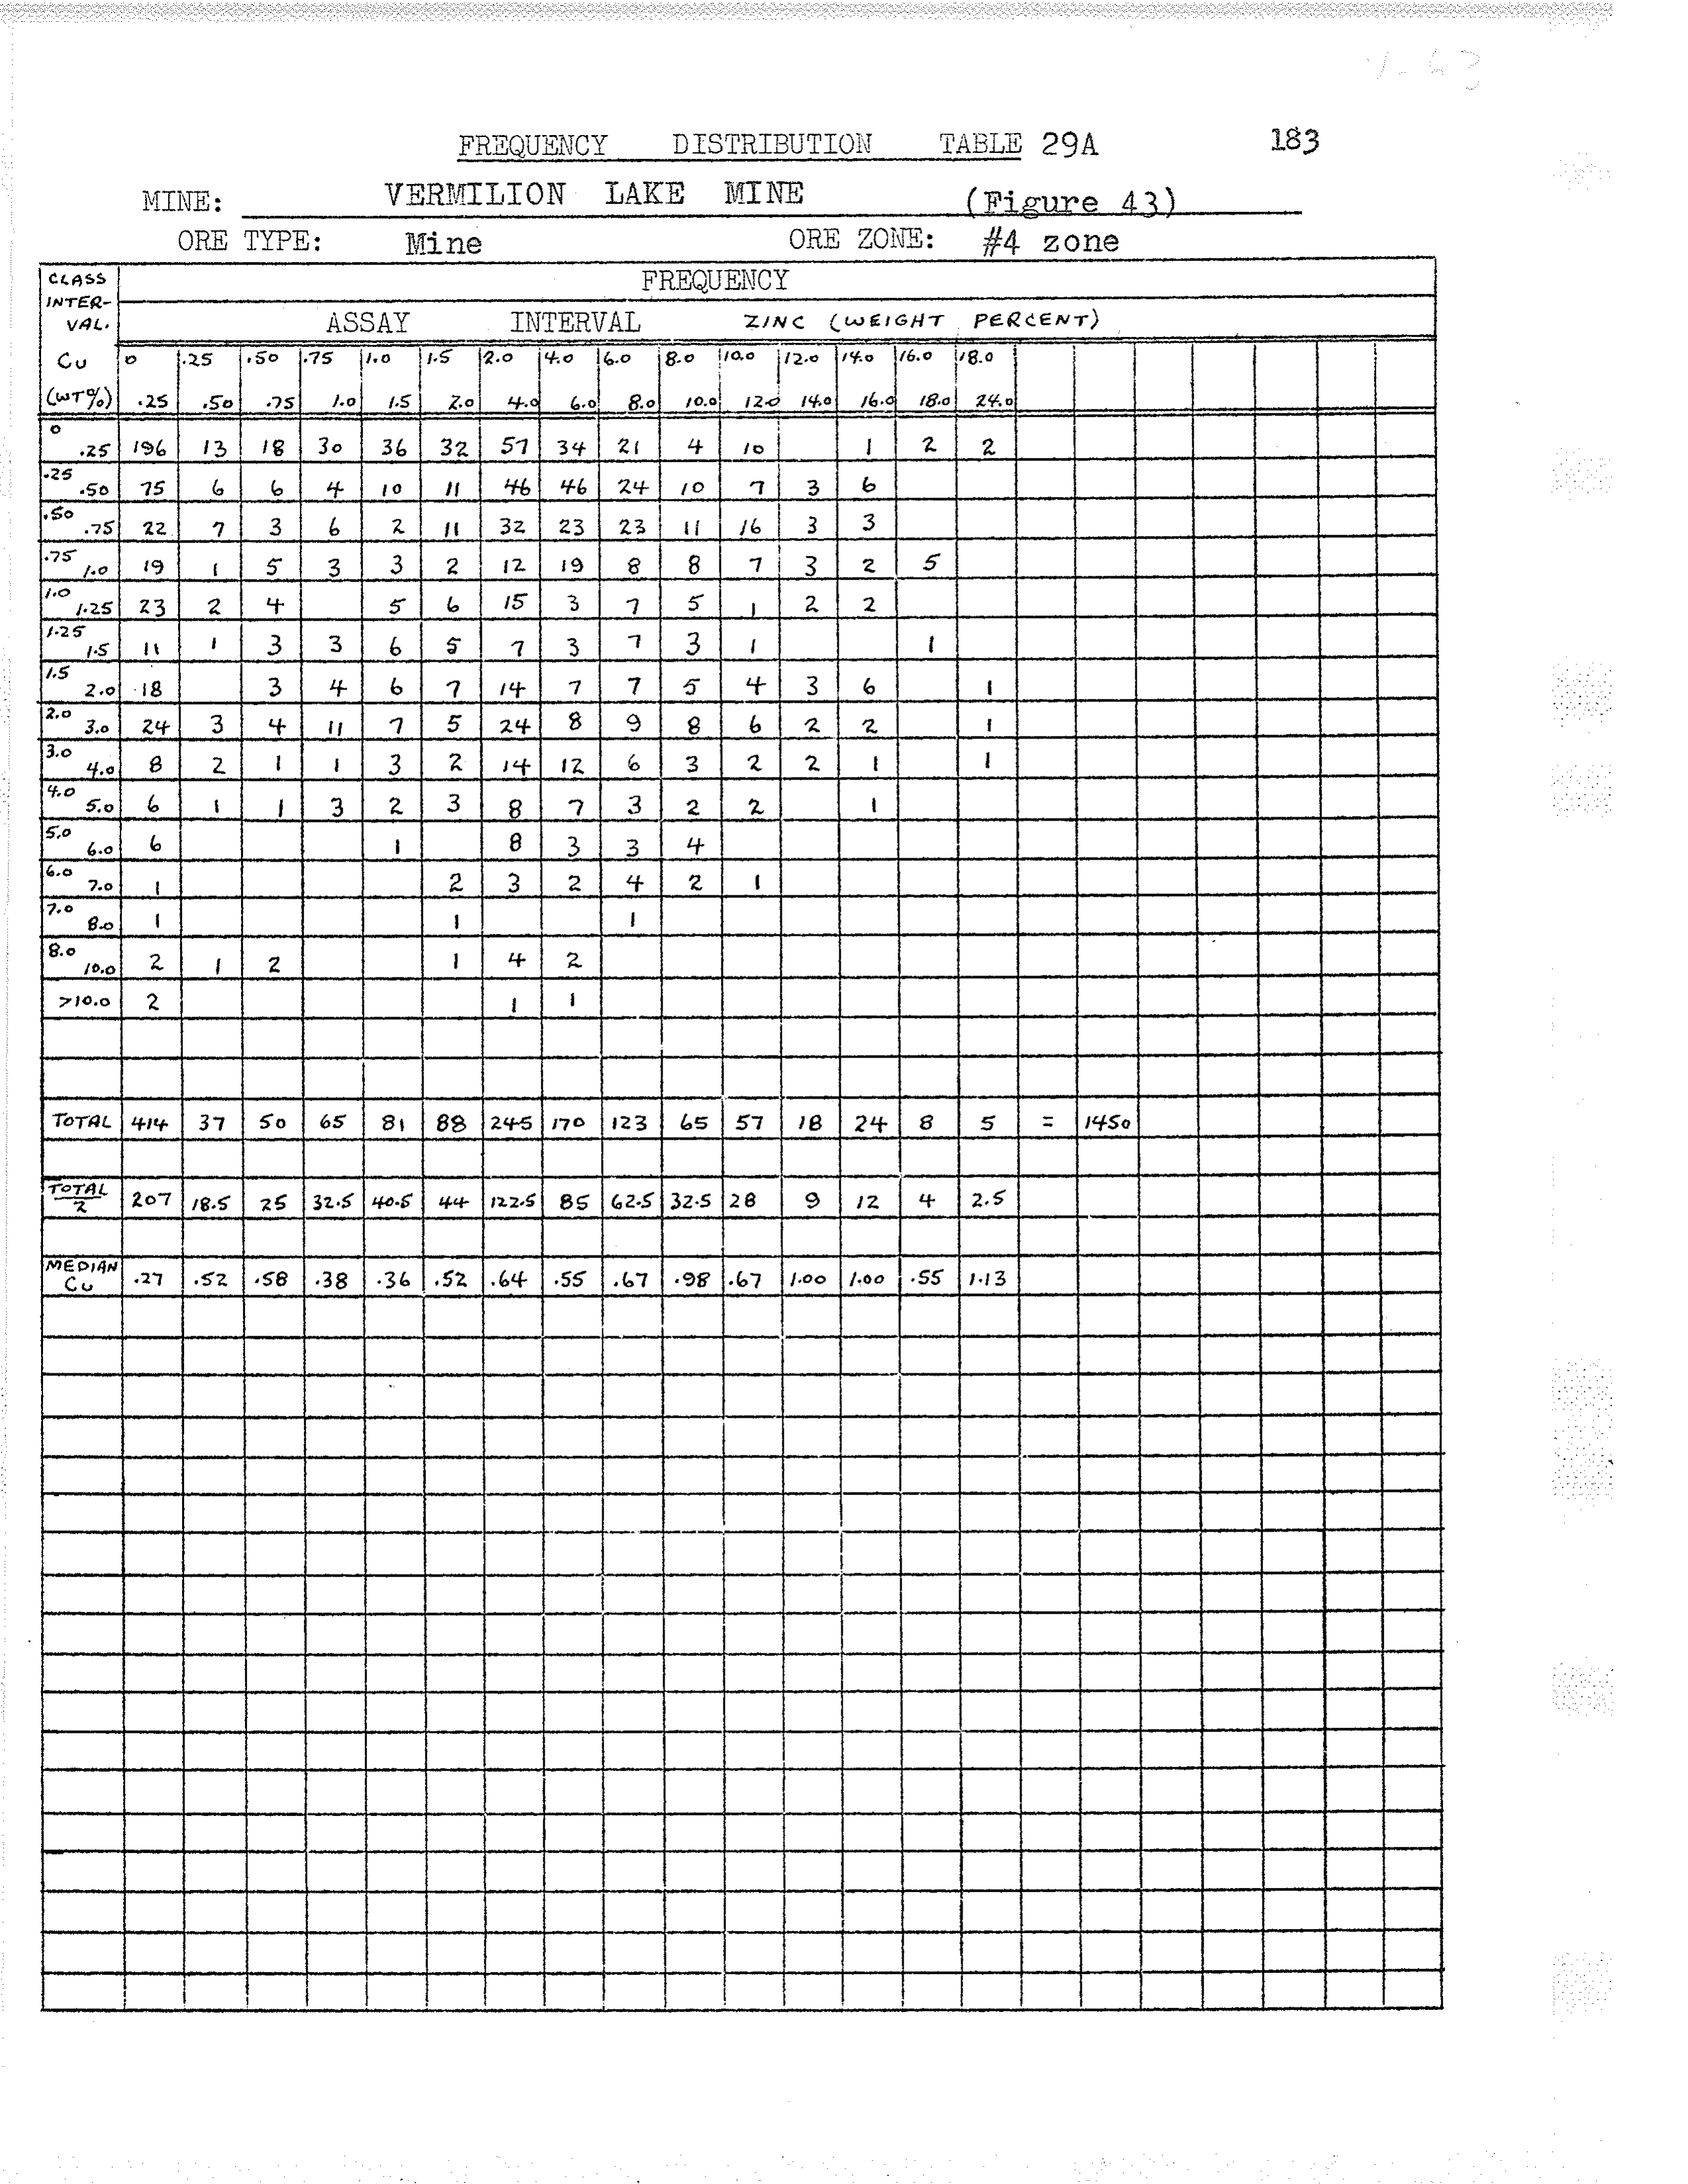 FREQUENCY DISTRIBUTION TABLE 29A 183
MINE: VERMILION LAKE MINE (Figure 43)
ORE TYPE: Mine ORE ZONE: #4 zone
CLASS INTER- VAL. FREQUENCY
ASSAY INTERVAL ZINC (WEIGHT PERCENT)
Cu 0 .25 .50 .75 1.0 1.5 2.0 4.0 6.0 8.0 10.0 12.0 14.0 16.0 18.0
(WT%) .25 .50 .75 1.0 1.5 2.0 4.0 6.0 8.0 10.0 12.0 14.0 16.0 18.0 24.0
0 .25 196 13 18 30 36 32 57 34 21 4 10 1 2 2
.25 .50 75 6 6 4 10 11 46 46 24 10 7 3 6
.50 .75 22 7 3 6 2 11 32 23 23 11 16 3 3
.75 1.0 19 1 5 3 3 2 12 19 8 8 7 3 2 5
1.0 1.25 23 2 4 5 6 15 3 7 5 1 2 2
1.25 1.5 11 1 3 3 6 5 7 3 7 3 1 1
1.5 2.0 18 3 4 6 7 14 7 7 5 4 3 6 1
2.0 3.0 24 3 4 11 7 5 24 8 9 8 6 2 2 1
3.0 4.0 8 2 1 1 3 2 14 12 6 3 2 2 1 1
4.0 5.0 6 1 1 3 2 3 8 7 3 2 2 1
5.0 6.0 6 1 8 3 3 4
6.0 7.0 1 2 3 2 4 2 1
7.0 8.0 1 1 1
8.0 10.0 2 1 2 1 4 2
>10.0 2 1 1
TOTAL 414 37 50 65 81 88 245 170 123 65 57 18 24 8 5 = 1450
TOTAL/2 207 18.5 25 32.5 40.5 44 122.5 85 62.5 32.5 28 9 12 4 2.5
MEDIAN Cu .27 .52 .58 .38 .36 .52 .64 .55 .67 .98 .67 1.00 1.00 .55 1.13